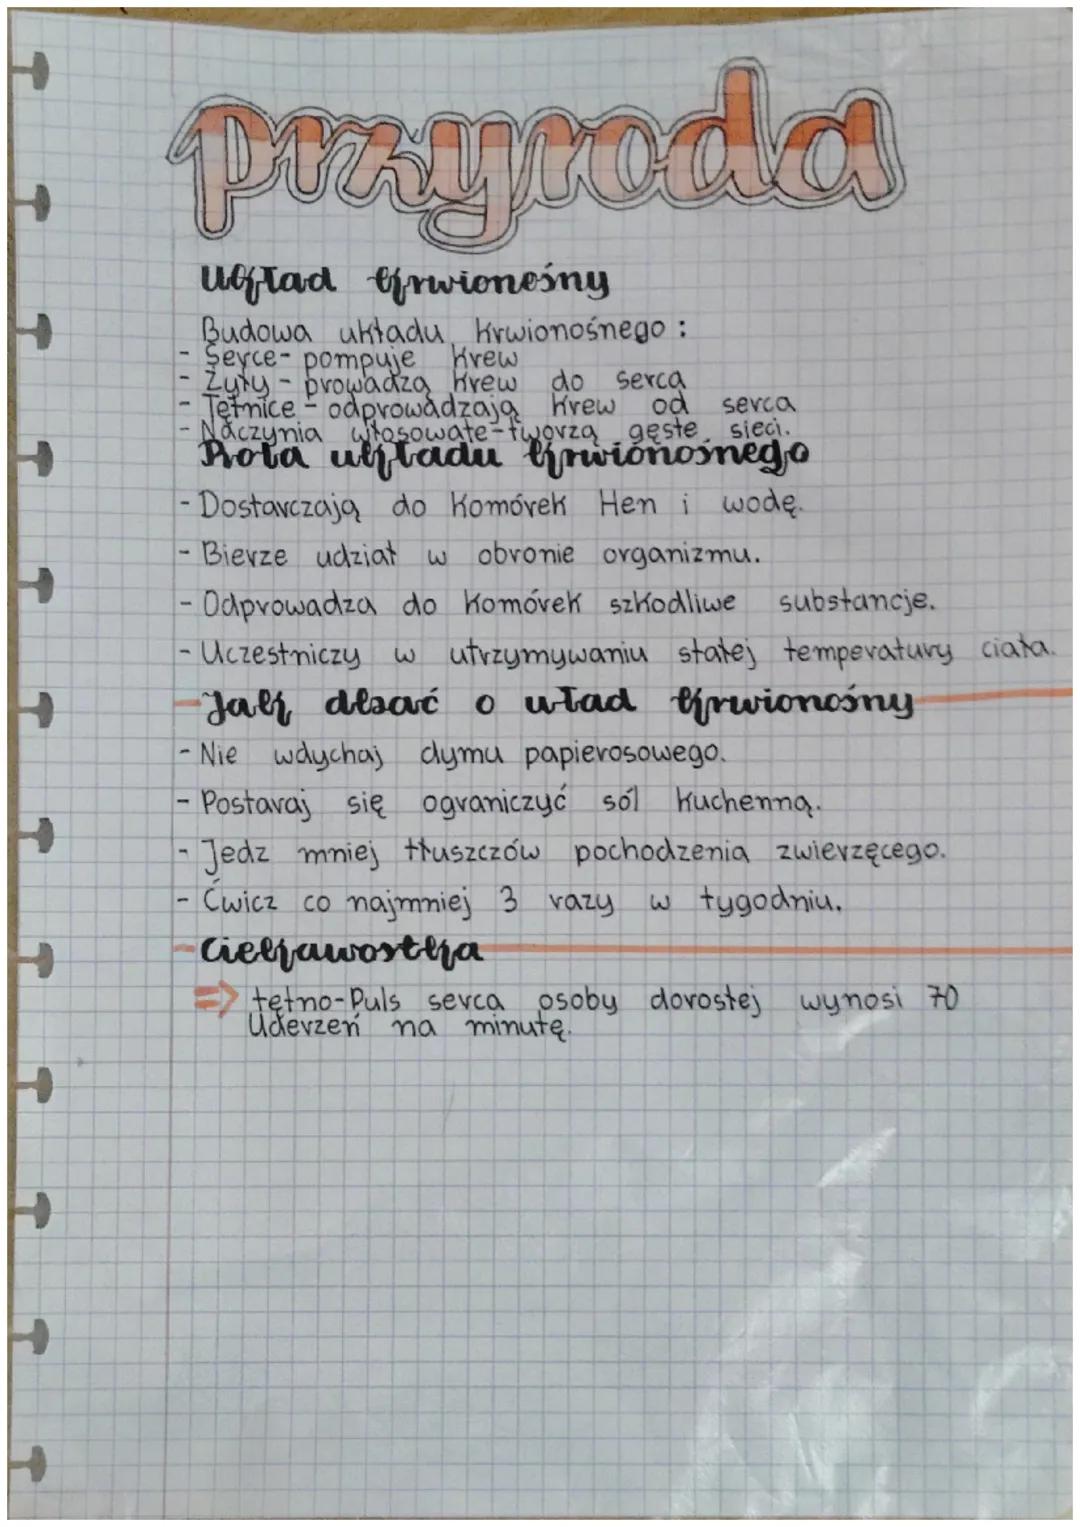 przyroda
Układ krwionośny
Budowa układu krwionośnego :
- Serce - pompuje krew
- Żyły - prowadzą krew do serca
- Tętnice - odprowadzają krew od serca
- Naczynia włosowate - tworzą gęste sieci.
Rola układu krwionośnego
- Dostarczają do komórek tlen i wodę.
- Bierze udział w obronie organizmu.
- Odprowadza do komórek szkodliwe substancje.
- Uczestniczy w utrzymywaniu stałej temperatury ciała.
- Jak dbać o uład krwionośny
- Nie wdychaj dymu papierosowego.
- Postaraj się ograniczyć sól kuchenną.
- Jedz mniej tłuszczów pochodzenia zwierzęcego.
- Ćwicz co najmniej 3 razy w tygodniu.
- Ciekawostka
⇒ tętno - Puls serca osoby dorosłej wynosi 70
Uderzeń na minutę.